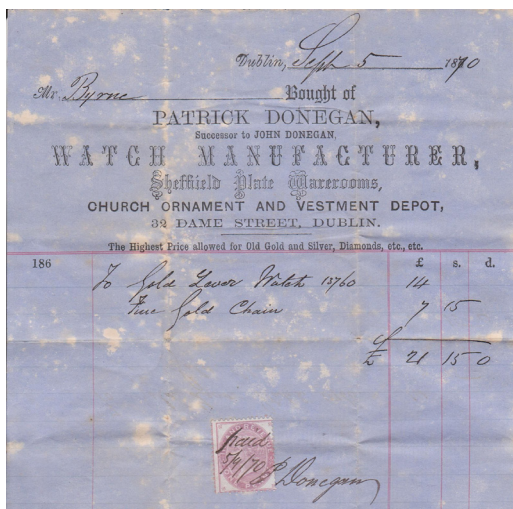 Dublin, Sept 5 1870
Mr. Byrne Bought of
PATRICK DONEGAN,
Successor to JOHN DONEGAN,
WATCH MANUFACTURER,
Sheffield Plate Warerooms,
CHURCH ORNAMENT AND VESTMENT DEPOT,
32 DAME STREET, DUBLIN.
The Highest Price allowed for Old Gold and Silver, Diamonds, etc., etc.
186 £ s. d.
To Gold Lever Watch 13760 14
Fine Gold Chain 7 15
£ 21 15 0
paid
5/9/70 P Donegan